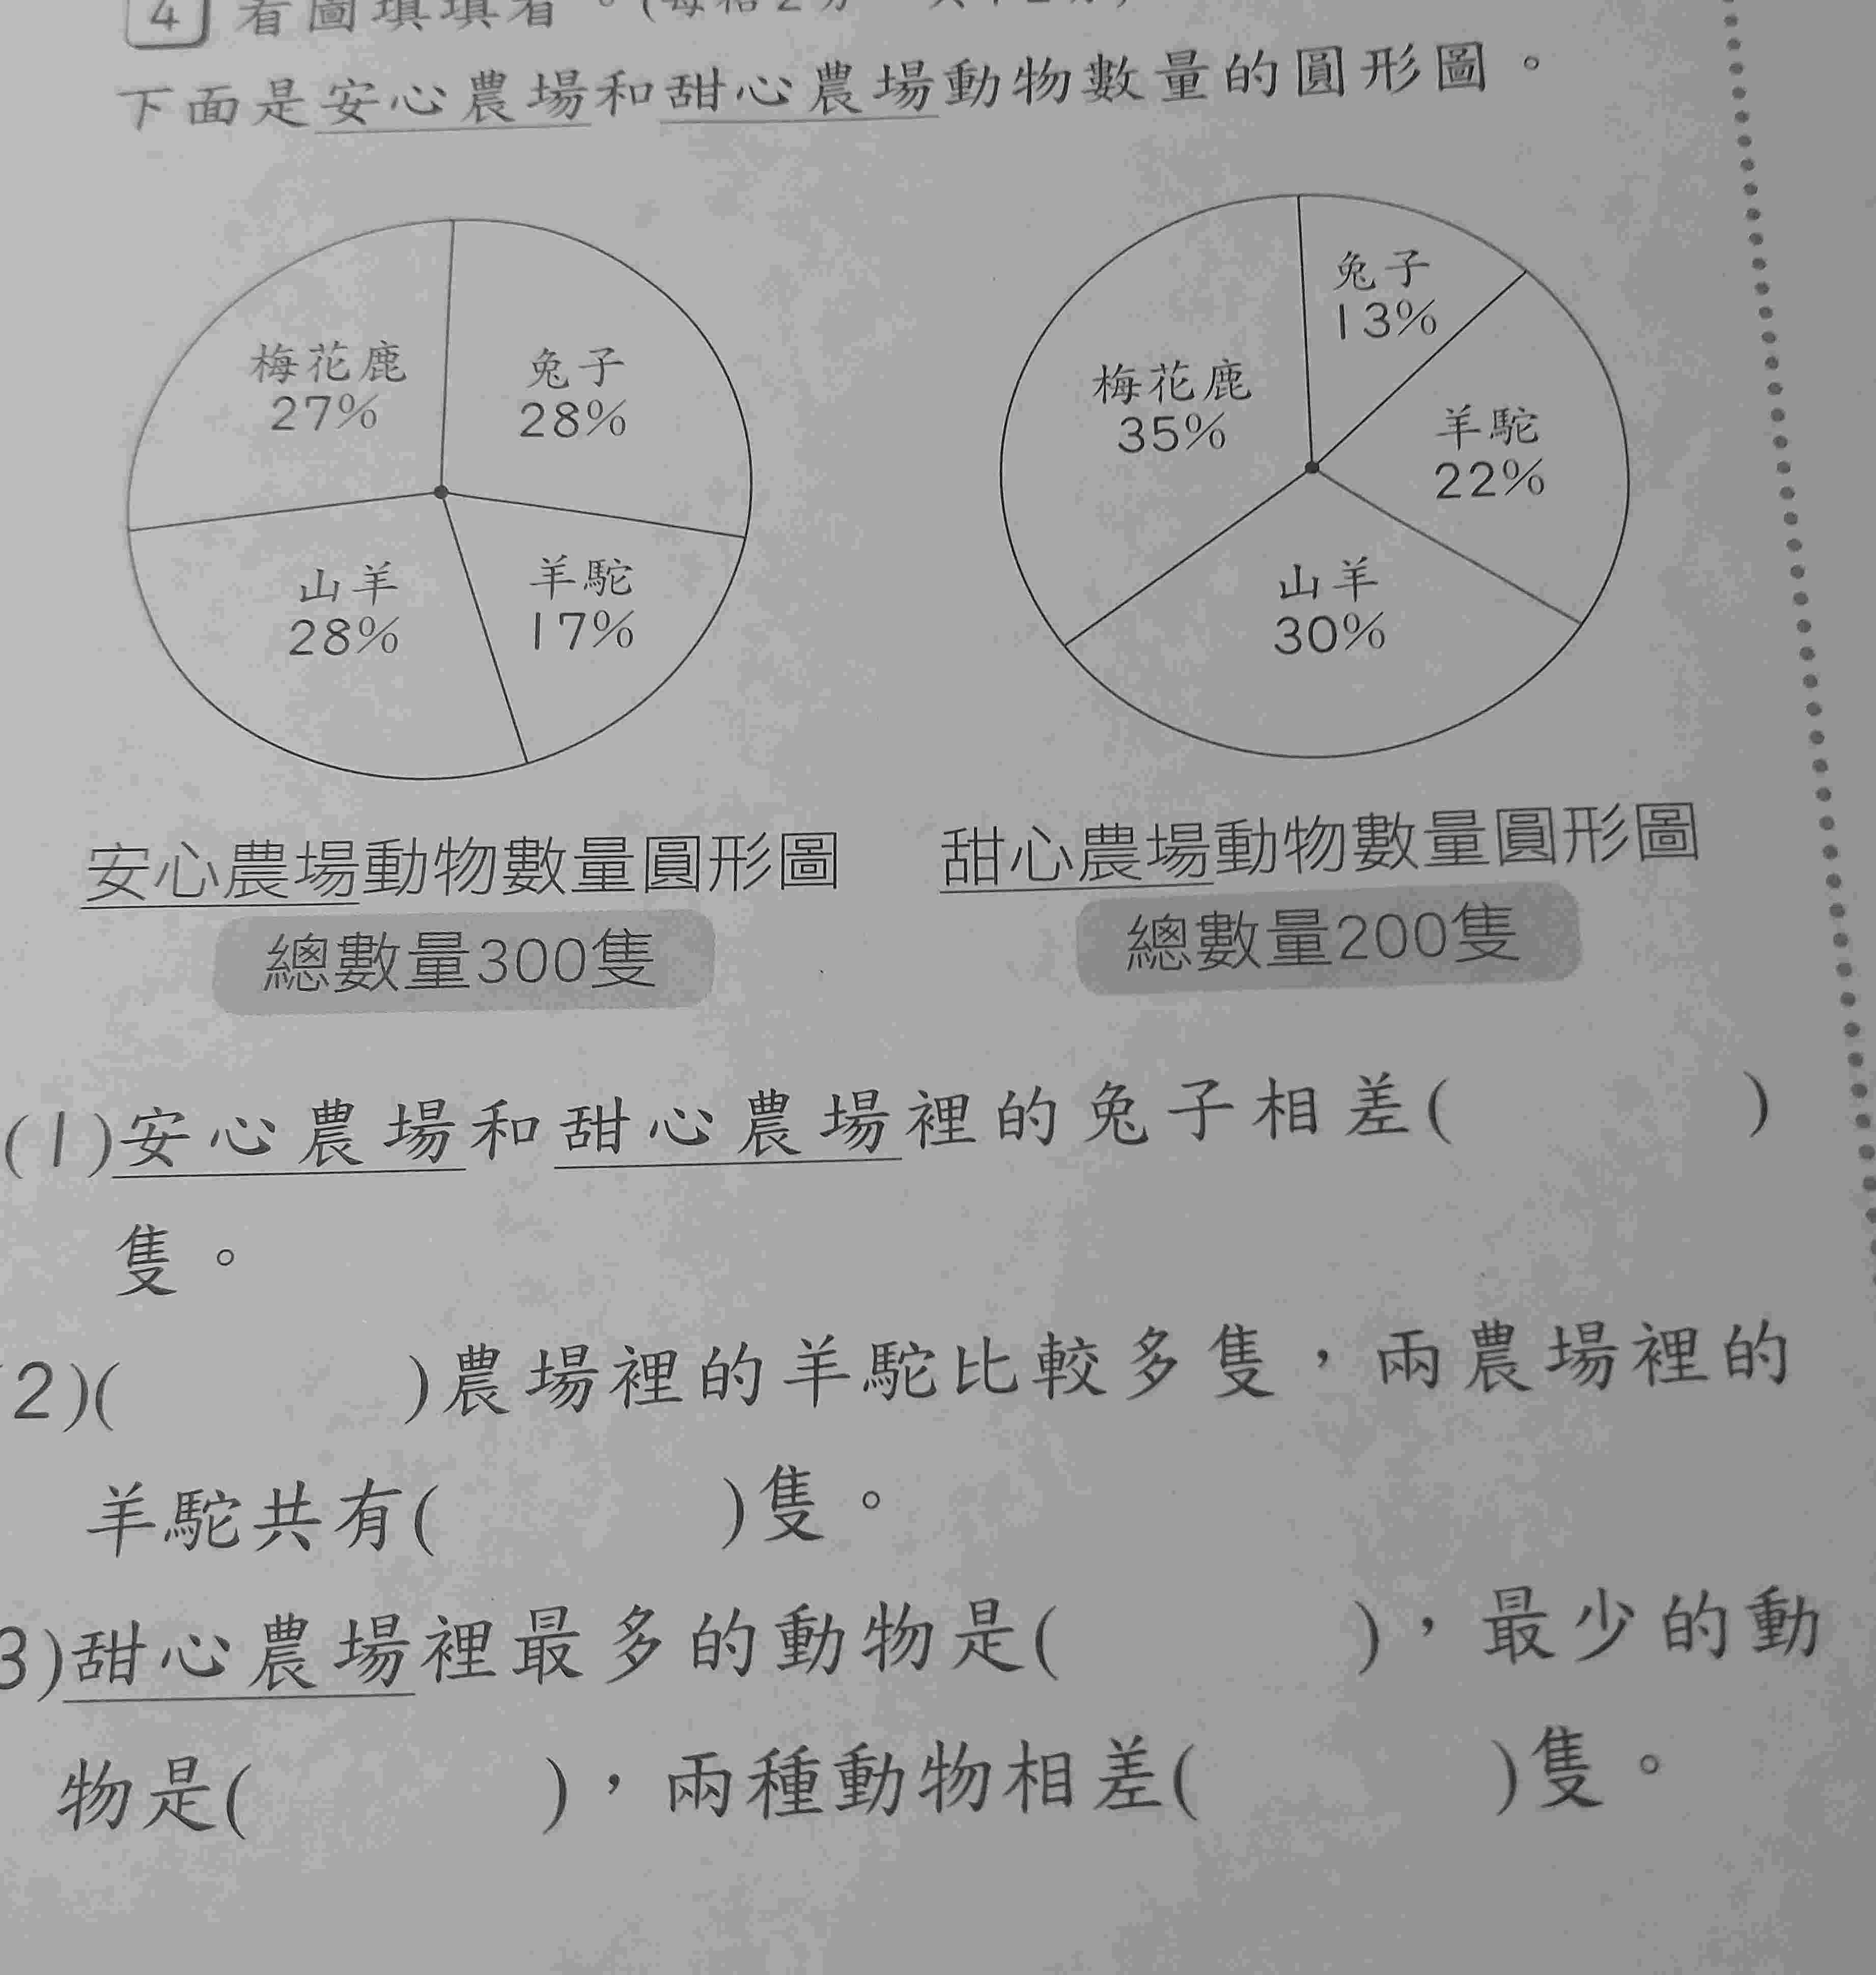 4 看圖填填看。(每格2分
下面是安心農場和甜心農場動物數量的圓形圖。
梅花鹿
27%
兔子
28%
山羊
28%
羊駝
17%
兔子
13%
梅花鹿
35%
羊駝
22%
山羊
30%
安心農場動物數量圓形圖
總數量300隻
甜心農場動物數量圓形圖
總數量200隻
(1)安心農場和甜心農場裡的兔子相差( )
隻。
2)( )農場裡的羊駝比較多隻,兩農場裡的
羊駝共有( )隻。
3)甜心農場裡最多的動物是( ),最少的動
物是( ),兩種動物相差( )隻。